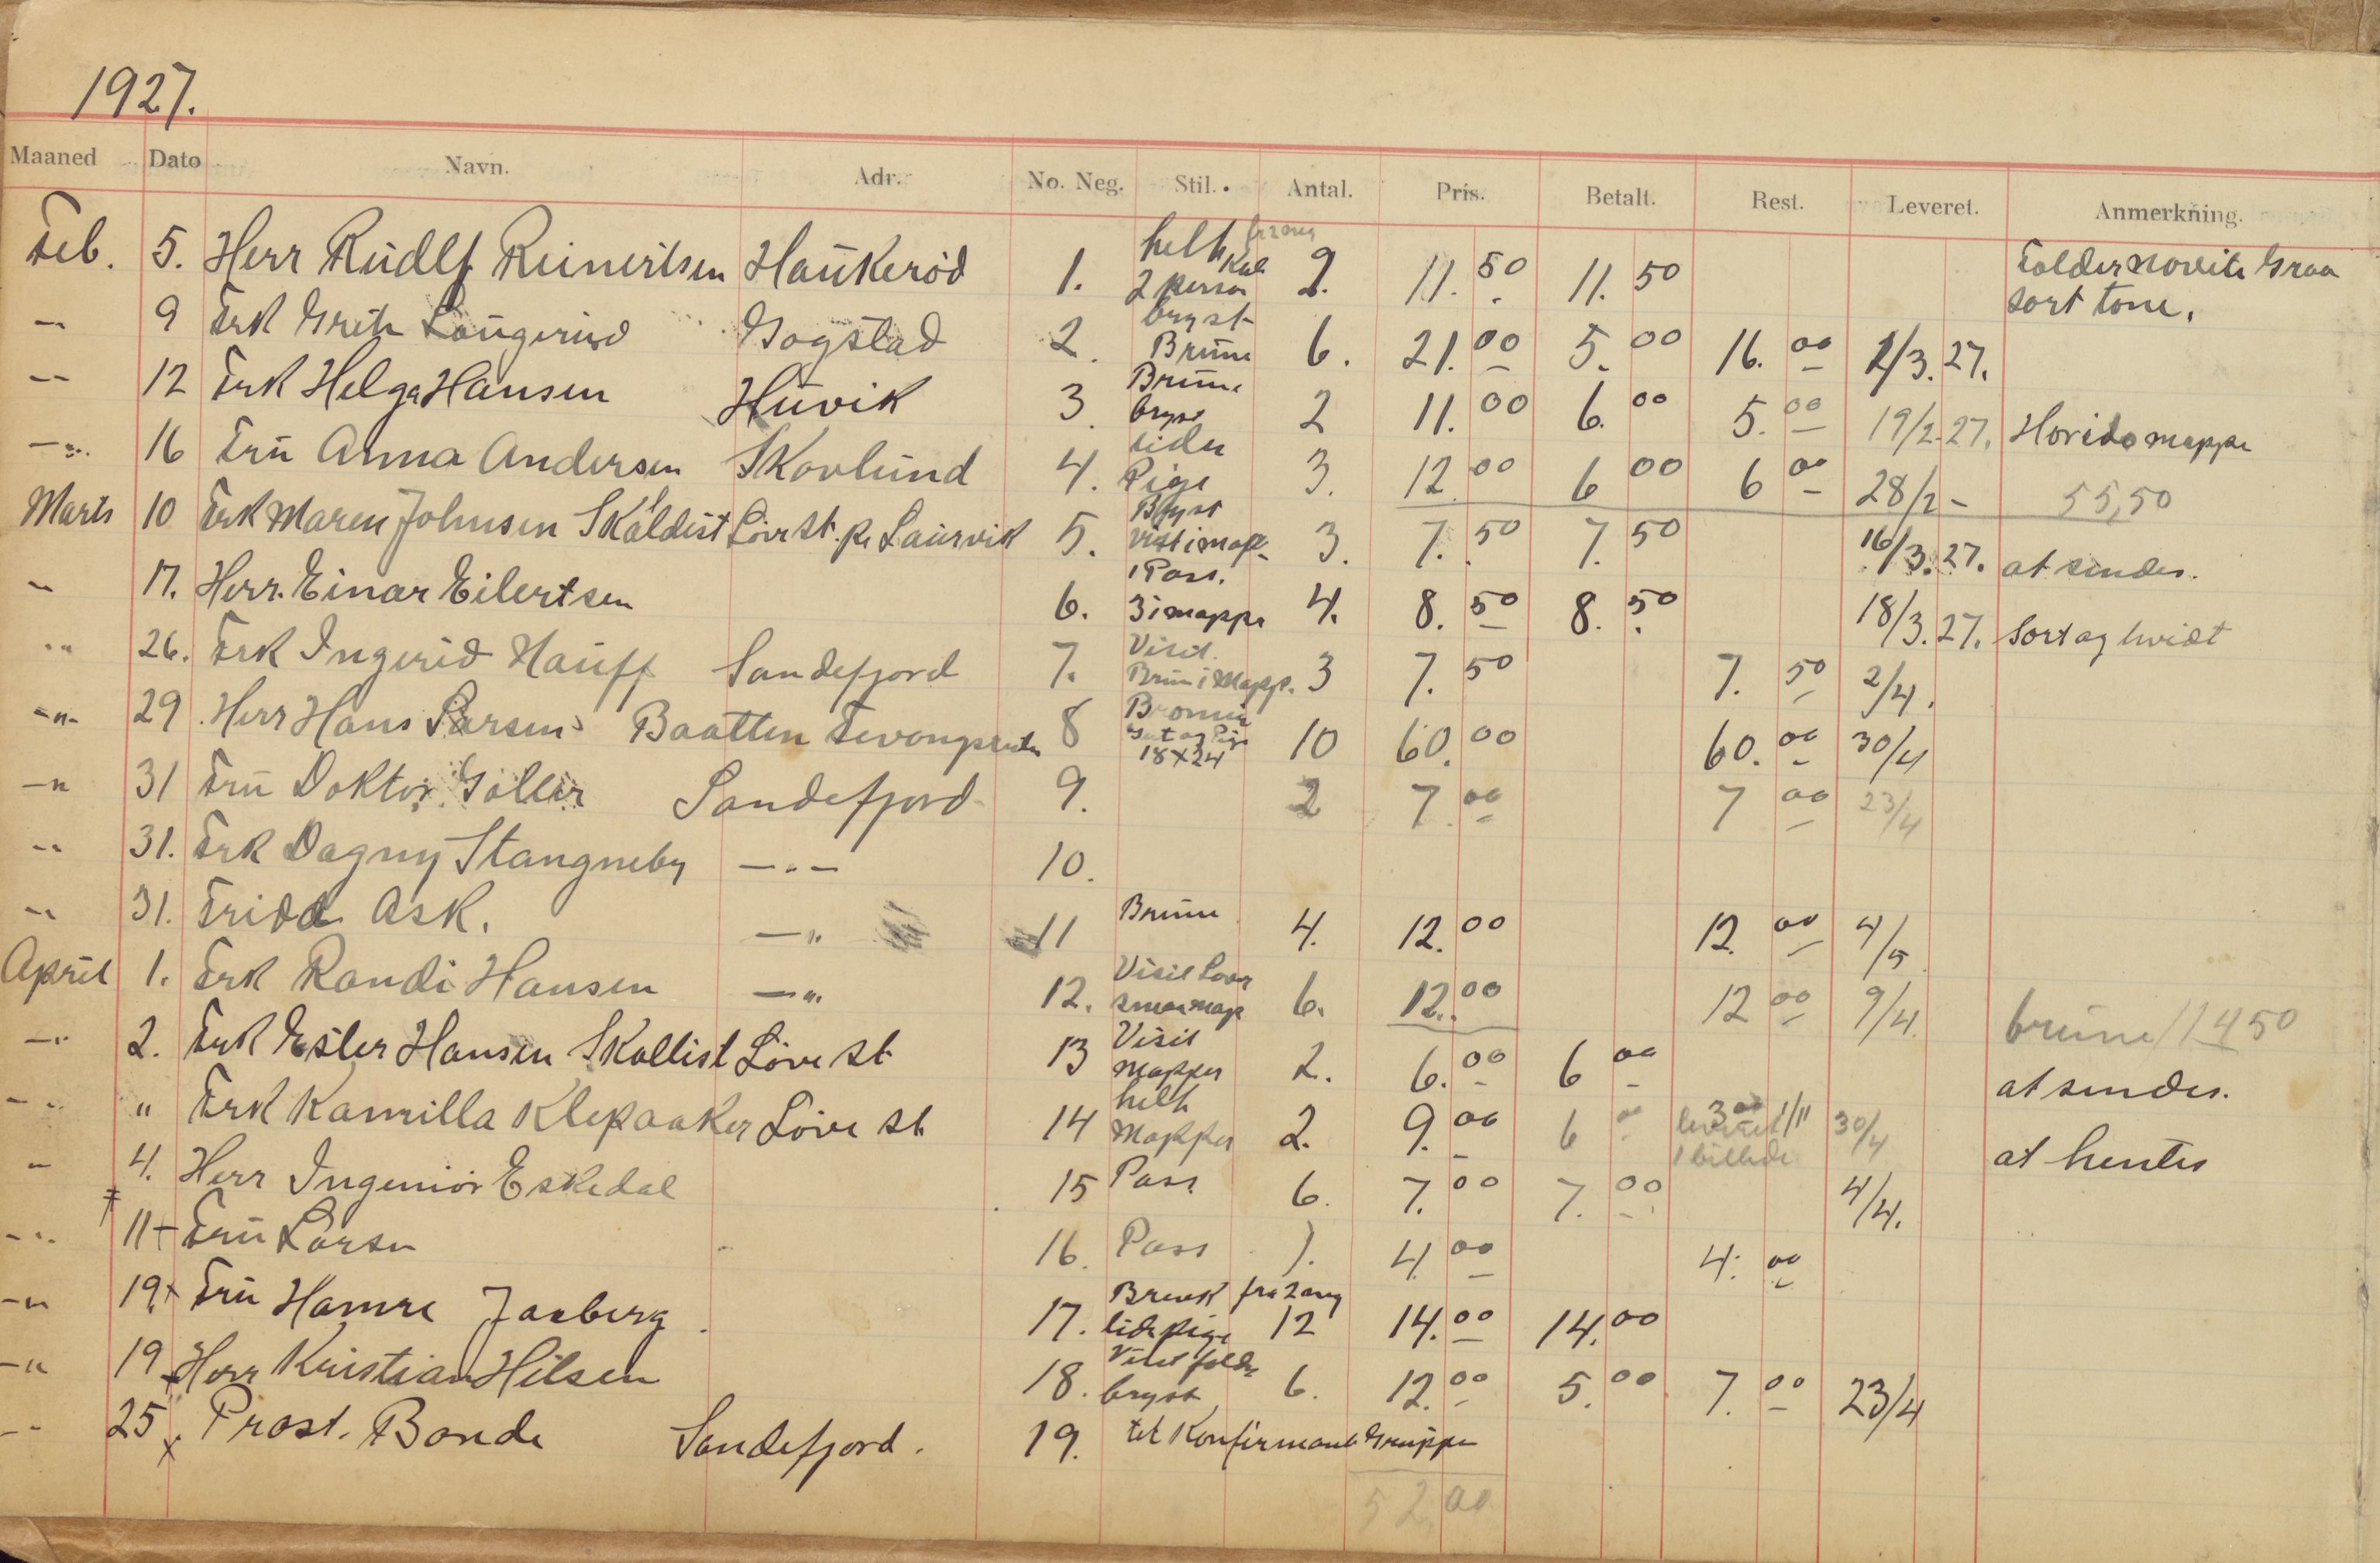 1927.
Maaned Dato Navn. Adr. No. Neg. Stil. Antal. Pris. Betalt. Rest. Leveret. Anmerkning.
Feb. 5. Herr Rudlf Reinertsen Haukerød 1. helt 2 person 2. 11.50 11.50 Folder Graa
sort tone.
-"- 9 Frk Grete Gogstad 2. bryst Brune 6. 21.00 5.00 16.00 1/3.27.
-"- 12 Frk Helga Hansen Huvik 3. Brune bryst 2 11.00 6.00 5.00 19/2.27. mappe
-"- 16 Fru Anna Andersen Skovlund 4. sider Pige 3. 12.00 6 00 6 00 28/2 - 55,50
Marts 10 Frk Maren Johnsen Skaldist Löve St. pr Laurvik 5. Bryst visit i map 3. 7.50 7.50 16/3.27. at sendes.
-"- 17. Herr. Einar Eilertsen 6. 1 Pass. 3 i mappe 4. 8.50 8.50 18/3.27. Sort og hvidt
-"- 26. Frk Ingerid Hauff Sandefjord 7. Visit. Brun i Mapp. 3 7.50 7.50 2/4.
-"- 29. Herr Hans Larsen Baatten 8 Gut og Pige 18x24 10 60.00 60.00 30/4
-"- 31 Fru Doktor Sandefjord 9. 2 7.00 7 00 23/4
-"- 31. Frk Dagny Stangneby -"- 10.
-"- 31. Frida Ask. -"- 11 Brune 4. 12.00 12.00 4/5
April 1. Frk Randi Hansen -"- 12. Visit 6. 12.00 12 00 9/4. brune 114 50
-"- 2. Frk Ester Hansen Skallist Löve St. 13 Visit Mapper 2. 6.00 6 00 at sendes.
-"- " Frk Kamilla Klepaaker Löve St. 14 helt Mapper 2. 9.00 6 00 3 00 leveret 1/11 1 billede 30/4 at hentes
-"- 4. Herr Ingeniör Eskedal 15 Pass 6. 7.00 7.00 4/4.
-"- 11+ Fru Larsn 16. Pass ). 4.00 4.00
-"- 19+ Fru Hamre Jaaberg 17. Brevk fra 2 neg lide pige 12 14.00 14.00
-"- 19 Herr Kristian Hilsen 18. Visit folder bryst 6. 12.00 5.00 7.00 23/4
-"- 25 x Prost. Bonde Sandefjord. 19. tet Konfirmant Gruppe
52,00